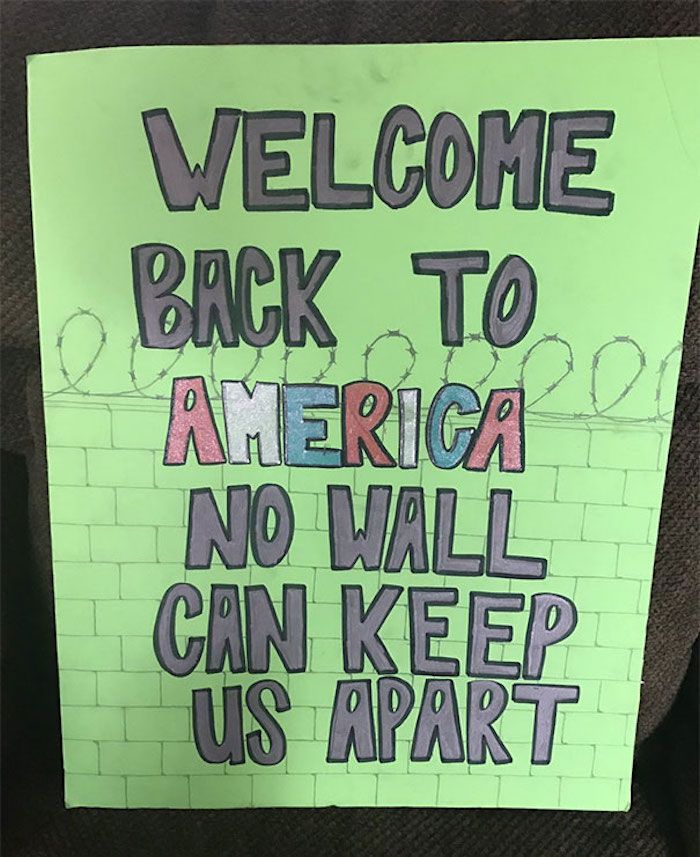 WELCOME
BACK TO
AMERICA
NO WALL
CAN KEEP
US APART